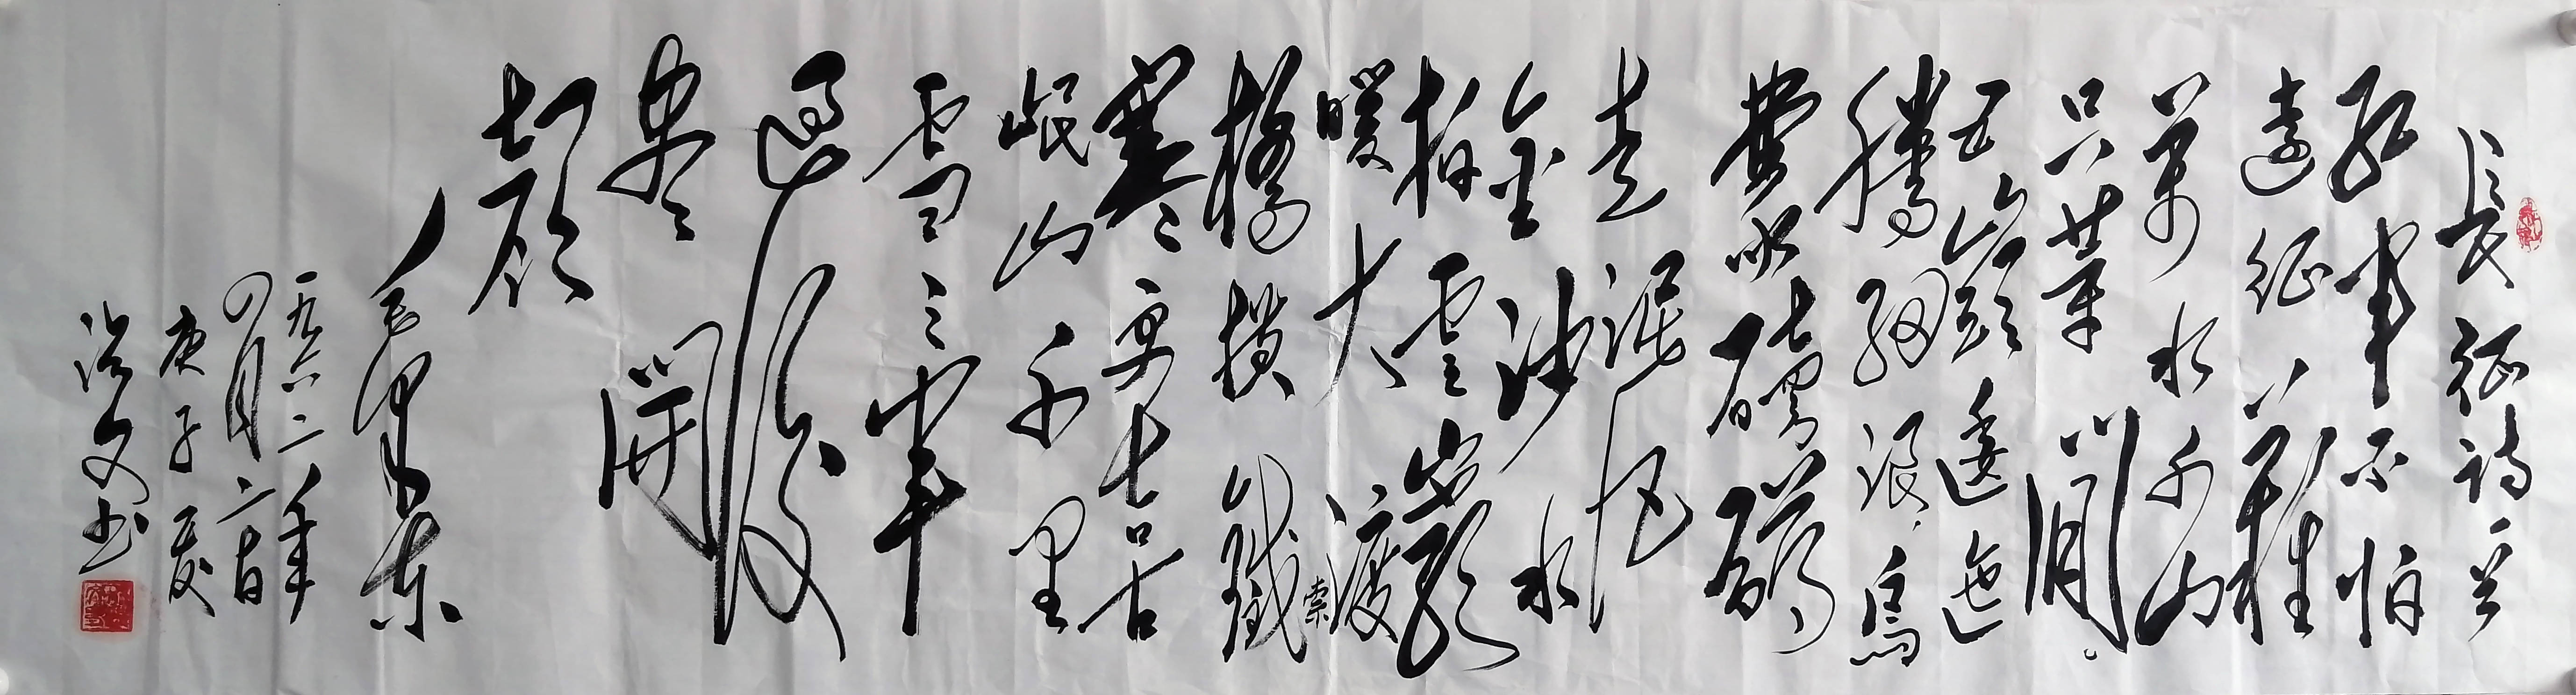 長征詩一首
红軍不怕
遠征難
萬水千山
只等閒
五嶺逶迤
騰細浪烏
蒙磅礴
走泥丸
金沙水
拍雲崖
暖大渡
橋横鐵索
寒更喜
岷山千里
雪三軍
過後
尽開
顏
毛澤東
一九六二年
四月二十日
庚子夏
文书